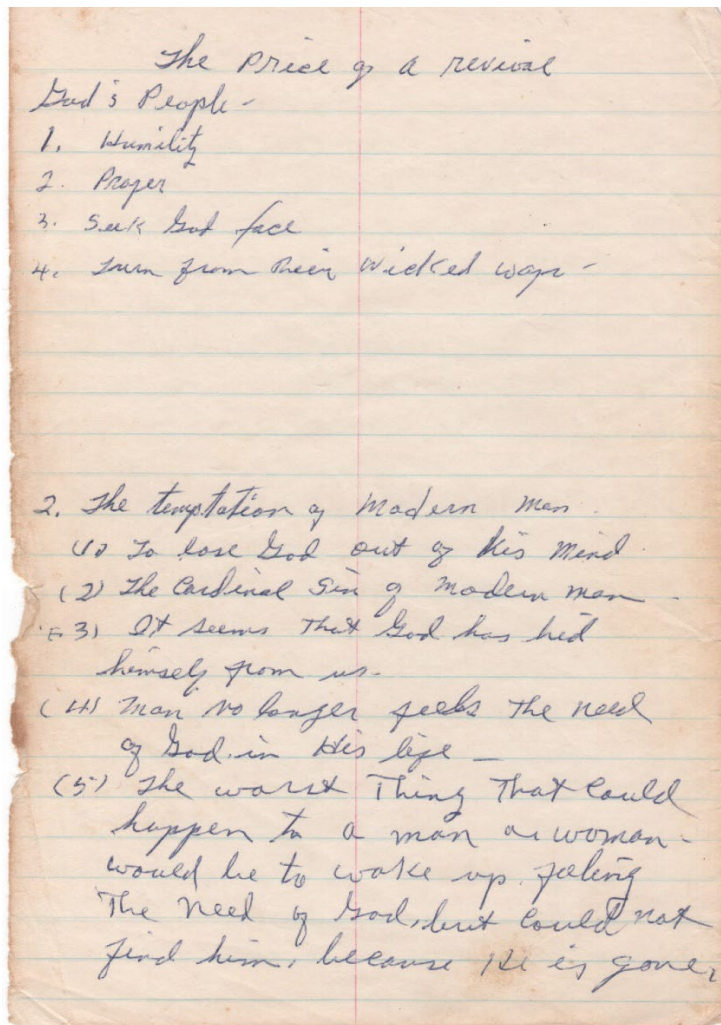 The Price of A revival
God's People -
1. Humility
2. Prayer
3. Seek God face
4. Turn from Their Wicked ways -
2. The temptation of Modern Man.
(1) To lose God out of His Mind
(2) The Cardinal Sin of Modern man -
(3) It seems That God has hid
himself from us -
(4) Man no longer feels The need
of God in His life -
(5) The worst Thing That Could
happen to a man or woman -
would be to wake up feeling
The Need of God, but Could not
find him, because He is gone.